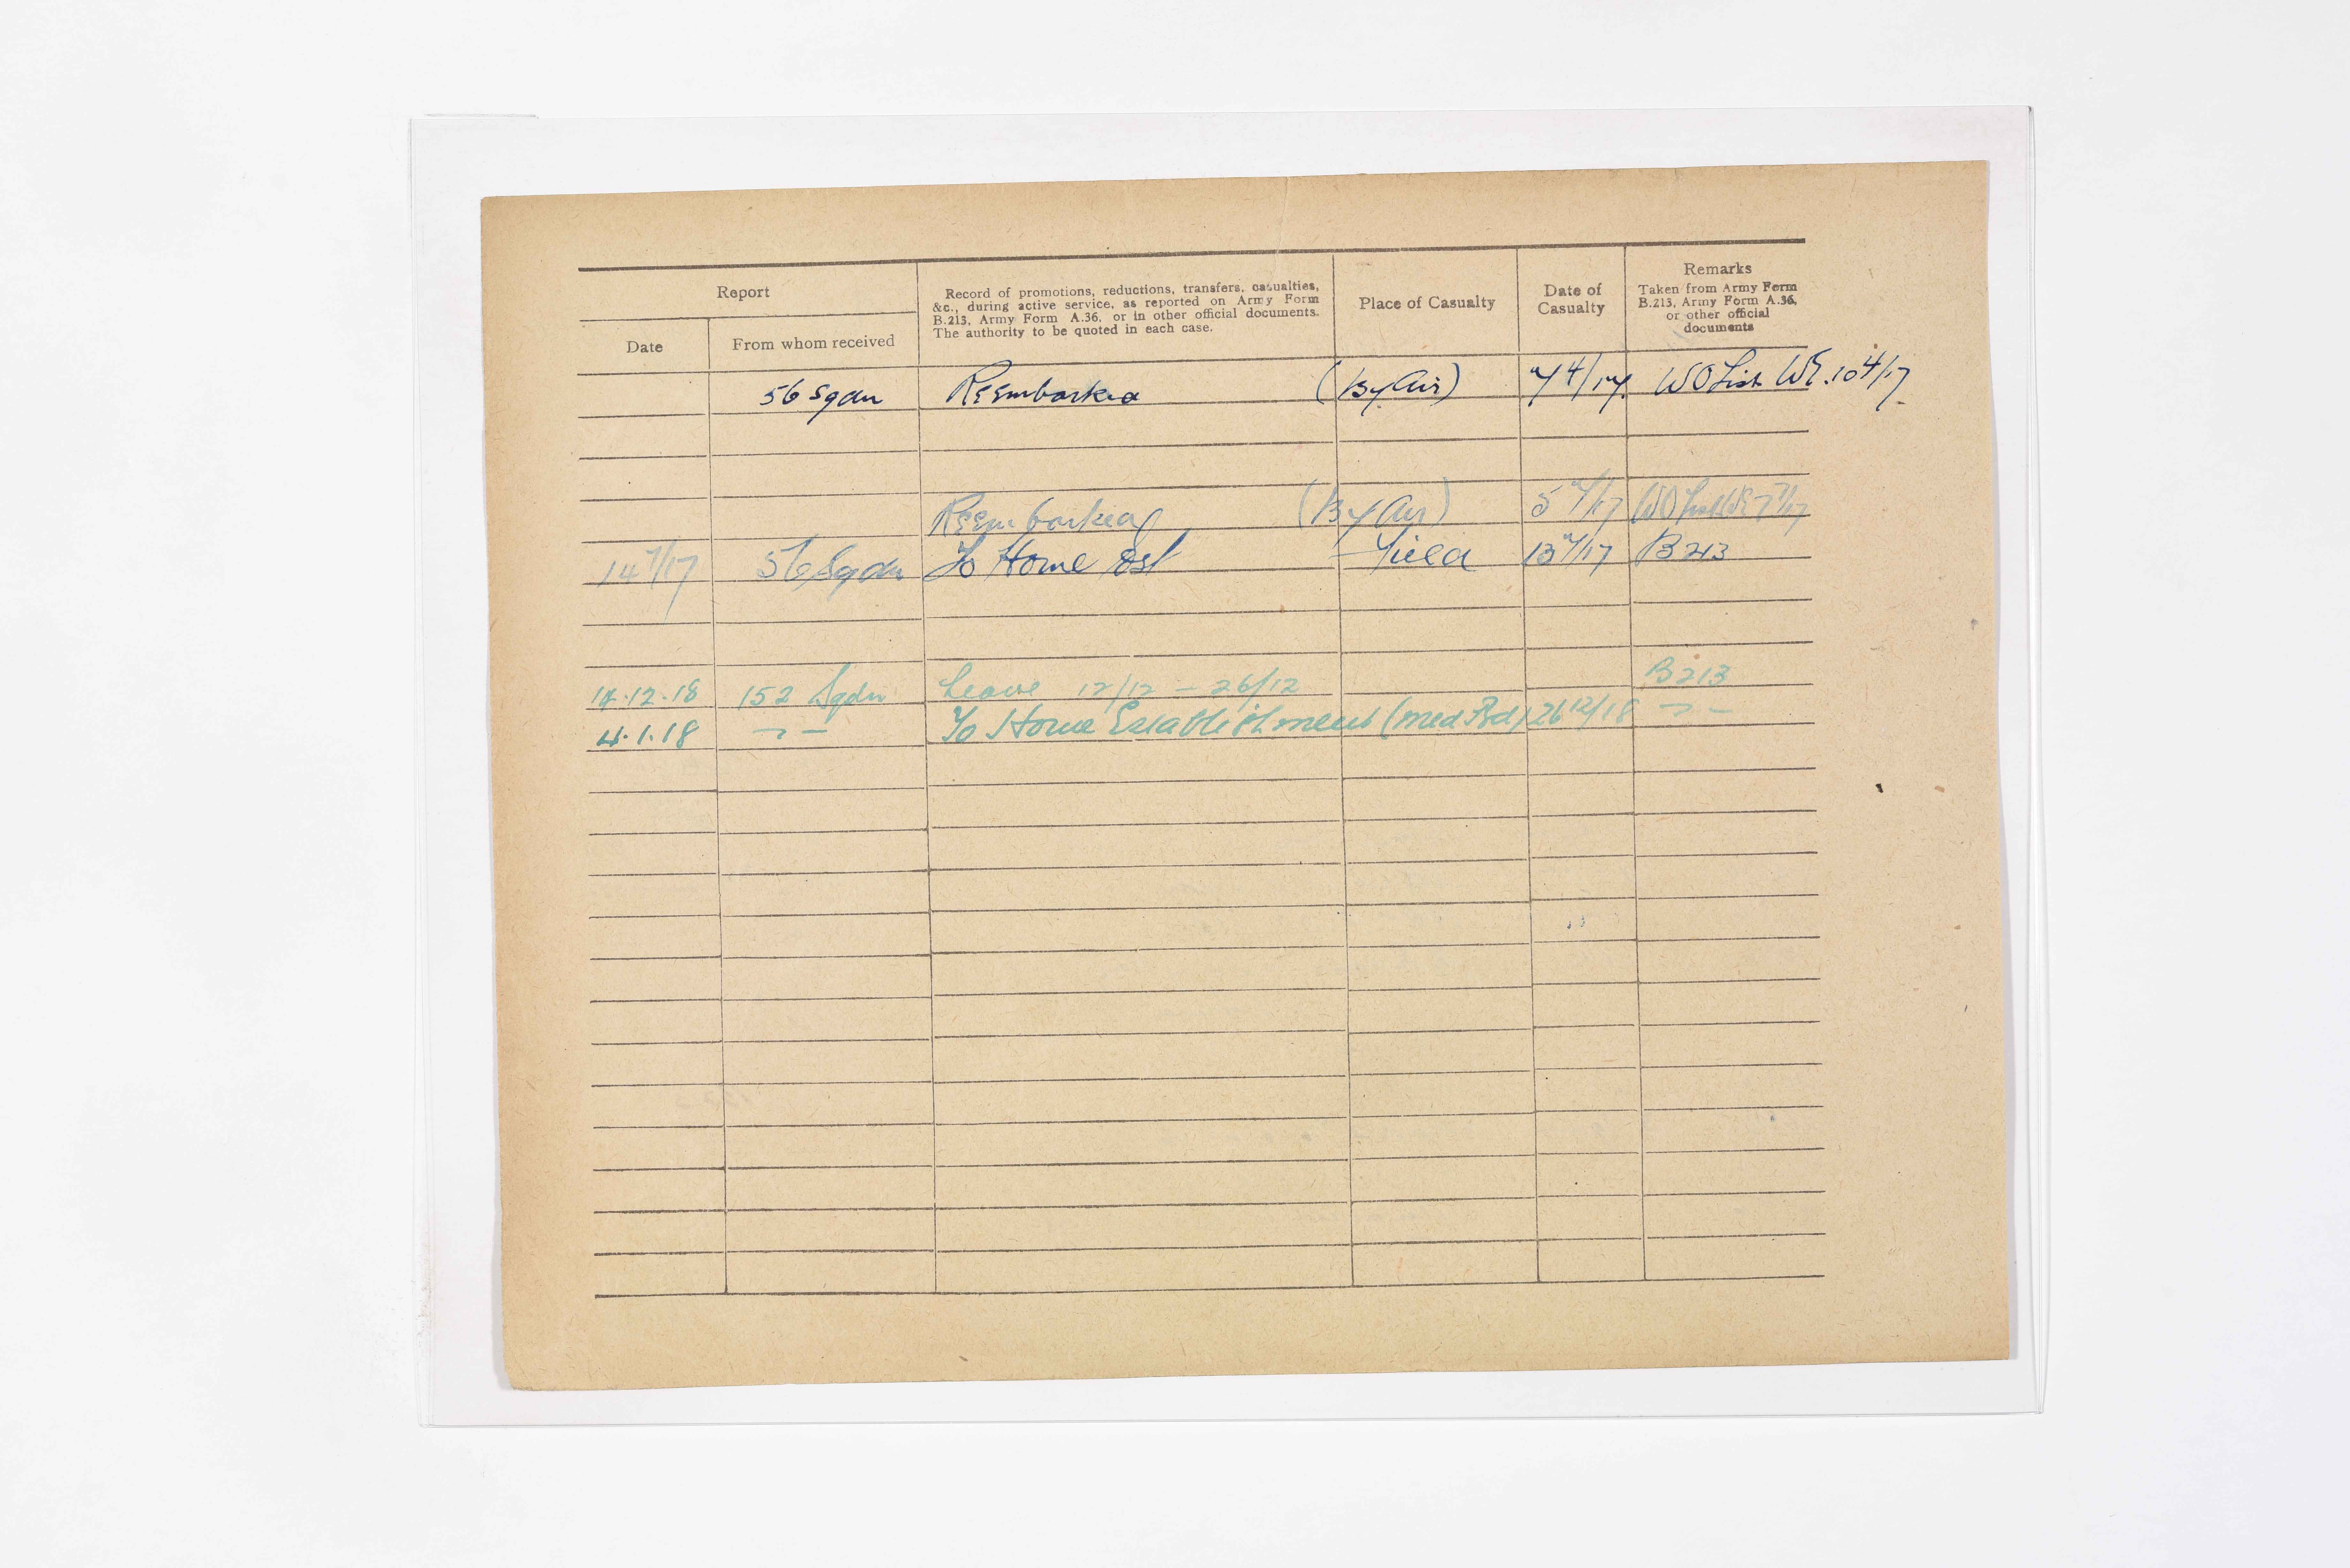 Report
Date
From whom received
Record of promotions, reductions, transfers, casualties,
&c., during active service, as reported on Army Form
B.213, Army Form A.36, or in other official documents.
The authority to be quoted in each case.
Place of Casualty
Date of
Casualty
Remarks
Taken from Army Form
B.213, Army Form A.36,
or other official
documents
56 Sqdn Reembarked (By Air) 7/4/17. WO List WE. 10 4/17
Reembarked (By Air) 5 7/17 WO List WE 7 7/17
14 7/17 56 Sqdn To Home Est Field 13 7/17 B213
14.12.18 152 Sqdn Leave 12/12 - 26/12 B213
4.1.18 To Home Establishment (Med Bd) 26 12/18